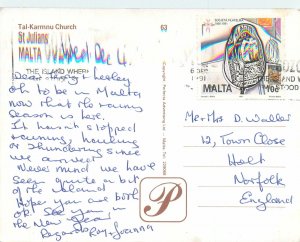 Tal-Karmnu Church
St Julians
MALTA
63
Wed Dec 4
THE ISLAND WHERE
Dear Doug + Lesley
Oh to be in Malta
now that the rainy
season is here.
It hasn't stopped
raining, howling
or thundering since
we arrived.
Never mind we have
seen quite a bit
of the Island
Hope you are both
ok. See you in
the New Year
Regards Roy + Joanna
SOCJETÀ FILATELIKA
MALTA
10c
Mr + Mrs D. Waller
12, Town Close
Holt
Norfolk
England
P